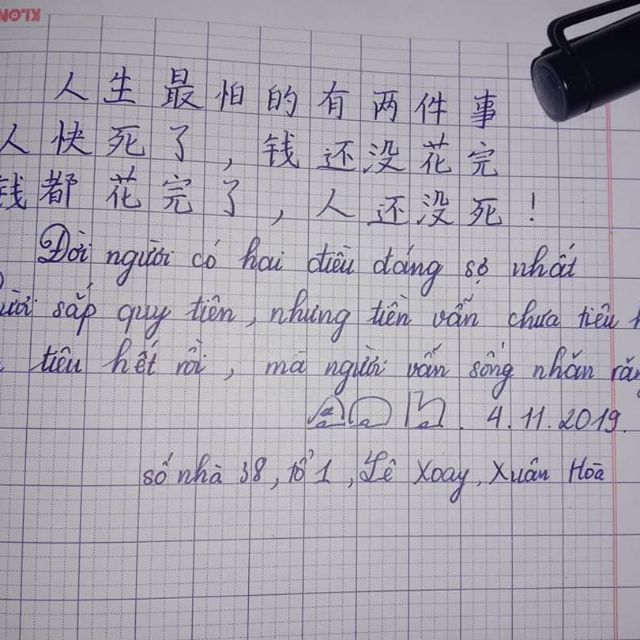 KLONG
人生最怕的有两件事
人快死了，钱还没花完
钱都花完了，人还没死！
Đời người có hai điều đáng sợ nhất
sắp quy tiên, nhưng tiền vẫn chưa tiêu
tiêu hết rồi, mà người vẫn sống nhăn răng
4.11.2019.
số nhà 38, tổ 1, Lê Xoay, Xuân Hòa